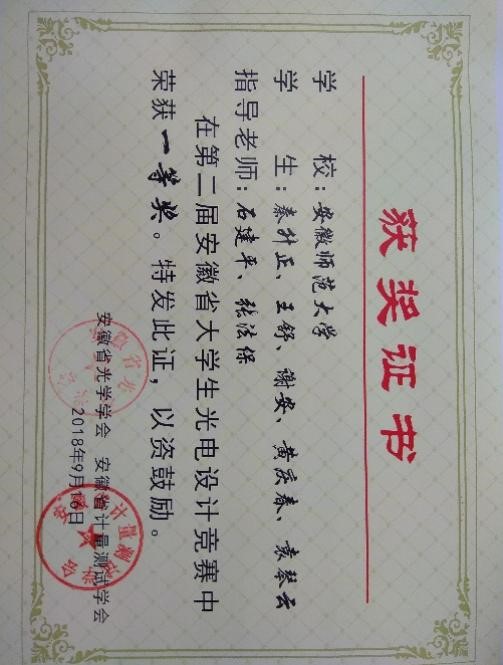 获奖证书
学 校：安徽师范大学
学 生：秦升正、王舒、谢安、黄庆春、袁琴云
指导老师：石建平、张法保
在第二届安徽省大学生光电设计竞赛中
荣获一等奖。特发此证，以资鼓励。
安徽省光学学会 安徽省计量测试学会
2018年9月16日